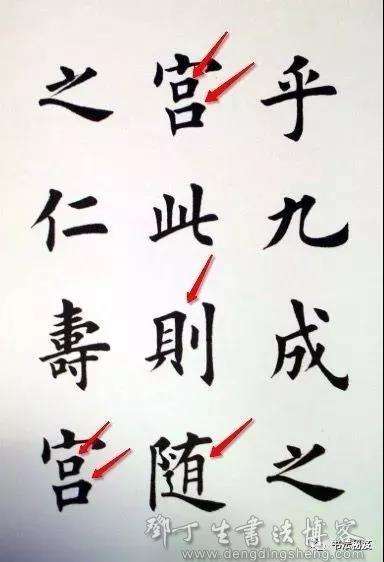 乎九成之
宫此則随
之仁壽宫
鄧丁生書法博客
www.dengdingsheng.com